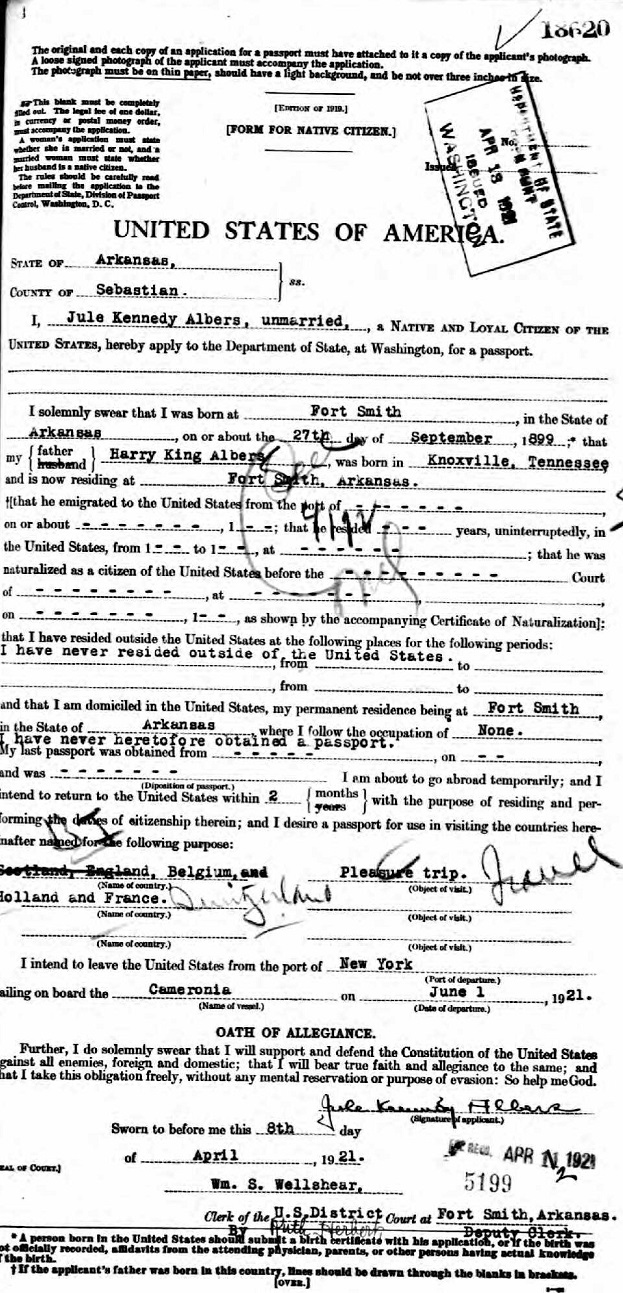 18620
The original and each copy of an application for a passport must have attached to it a copy of the applicant's photograph.
A loose signed photograph of the applicant must accompany the application.
The photograph must be on thin paper, should have a light background, and be not over three inches in size.
This blank must be completely
filled out. The legal fee of one dollar,
in currency or postal money order,
must accompany the application.
A woman's application must state
whether she is married or not, and a
married woman must state whether
her husband is a native citizen.
The rules should be carefully read
before mailing the application to the
Department of State, Division of Passport
Control, Washington, D. C.
[EDITION OF 1919.]
[FORM FOR NATIVE CITIZEN.]
No.
Issued
DEPARTMENT OF STATE
APR 13 1921
ISSUED
WASHINGTON
UNITED STATES OF AMERICA.
STATE OF Arkansas,
COUNTY OF Sebastian.
ss.
I, Jule Kennedy Albers, unmarried, , a NATIVE AND LOYAL CITIZEN OF THE
UNITED STATES, hereby apply to the Department of State, at Washington, for a passport.
I solemnly swear that I was born at Fort Smith , in the State of
Arkansas , on or about the 27th day of September , 1899 ;* that
my { father husband } Harry King Albers , was born in Knoxville, Tennessee
and is now residing at Fort Smith, Arkansas.
†[that he emigrated to the United States from the port of - - - - - - - ,
on or about - - - - - - - - , 1 - - ; that he resided - - - years, uninterruptedly, in
the United States, from 1 - - to 1 - - , at - - - - - - - - ; that he was
naturalized as a citizen of the United States before the - - - - - - - - - Court
of - - - - - - - - , at - - - - - - - ,
on - - - - - - - , 1 - - , as shown by the accompanying Certificate of Naturalization];
that I have resided outside the United States at the following places for the following periods:
I have never resided outside of the United States.
, from to
, from to
and that I am domiciled in the United States, my permanent residence being at Fort Smith ,
in the State of Arkansas , where I follow the occupation of None.
I have never heretofore obtained a passport.
My last passport was obtained from - - - - - , on - -
and was - - - - - - - I am about to go abroad temporarily; and I
(Diposition of passport.)
intend to return to the United States within 2 { months years } with the purpose of residing and per-
forming the duties of citizenship therein; and I desire a passport for use in visiting the countries here-
nafter named for the following purpose:
Scotland, England, Belgium, and Pleasure trip. Travel
(Name of country.) (Object of visit.)
Holland and France. Switzerland
(Name of country.) (Object of visit.)
(Name of country.) (Object of visit.)
I intend to leave the United States from the port of New York
(Port of departure.)
ailing on board the Cameronia on June 1 , 1921.
(Name of vessel.) (Date of departure.)
OATH OF ALLEGIANCE.
Further, I do solemnly swear that I will support and defend the Constitution of the United States
gainst all enemies, foreign and domestic; that I will bear true faith and allegiance to the same; and
hat I take this obligation freely, without any mental reservation or purpose of evasion: So help me God.
Jule Kennedy Albers
(Signature of applicant.)
Sworn to before me this 8th day
of April , 1921.
EAL OF COURT.]
RECD. APR 12 1921
5199
Wm. S. Wellshear,
Clerk of the U.S. District Court at Fort Smith, Arkansas.
By Ruth Herbert Deputy Clerk.
* A person born in the United States should submit a birth certificate with his application, or if the birth was
ot officially recorded, affidavits from the attending physician, parents, or other persons having actual knowledge
f the birth.
† If the applicant's father was born in this country, lines should be drawn through the blanks in brackets.
[OVER.]